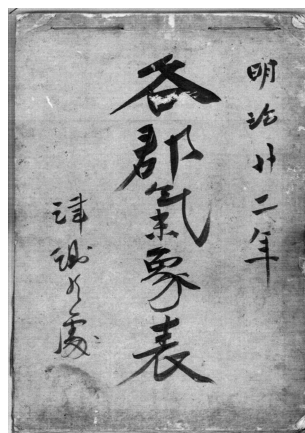 明治廿二年
各郡氣象表
津測候處